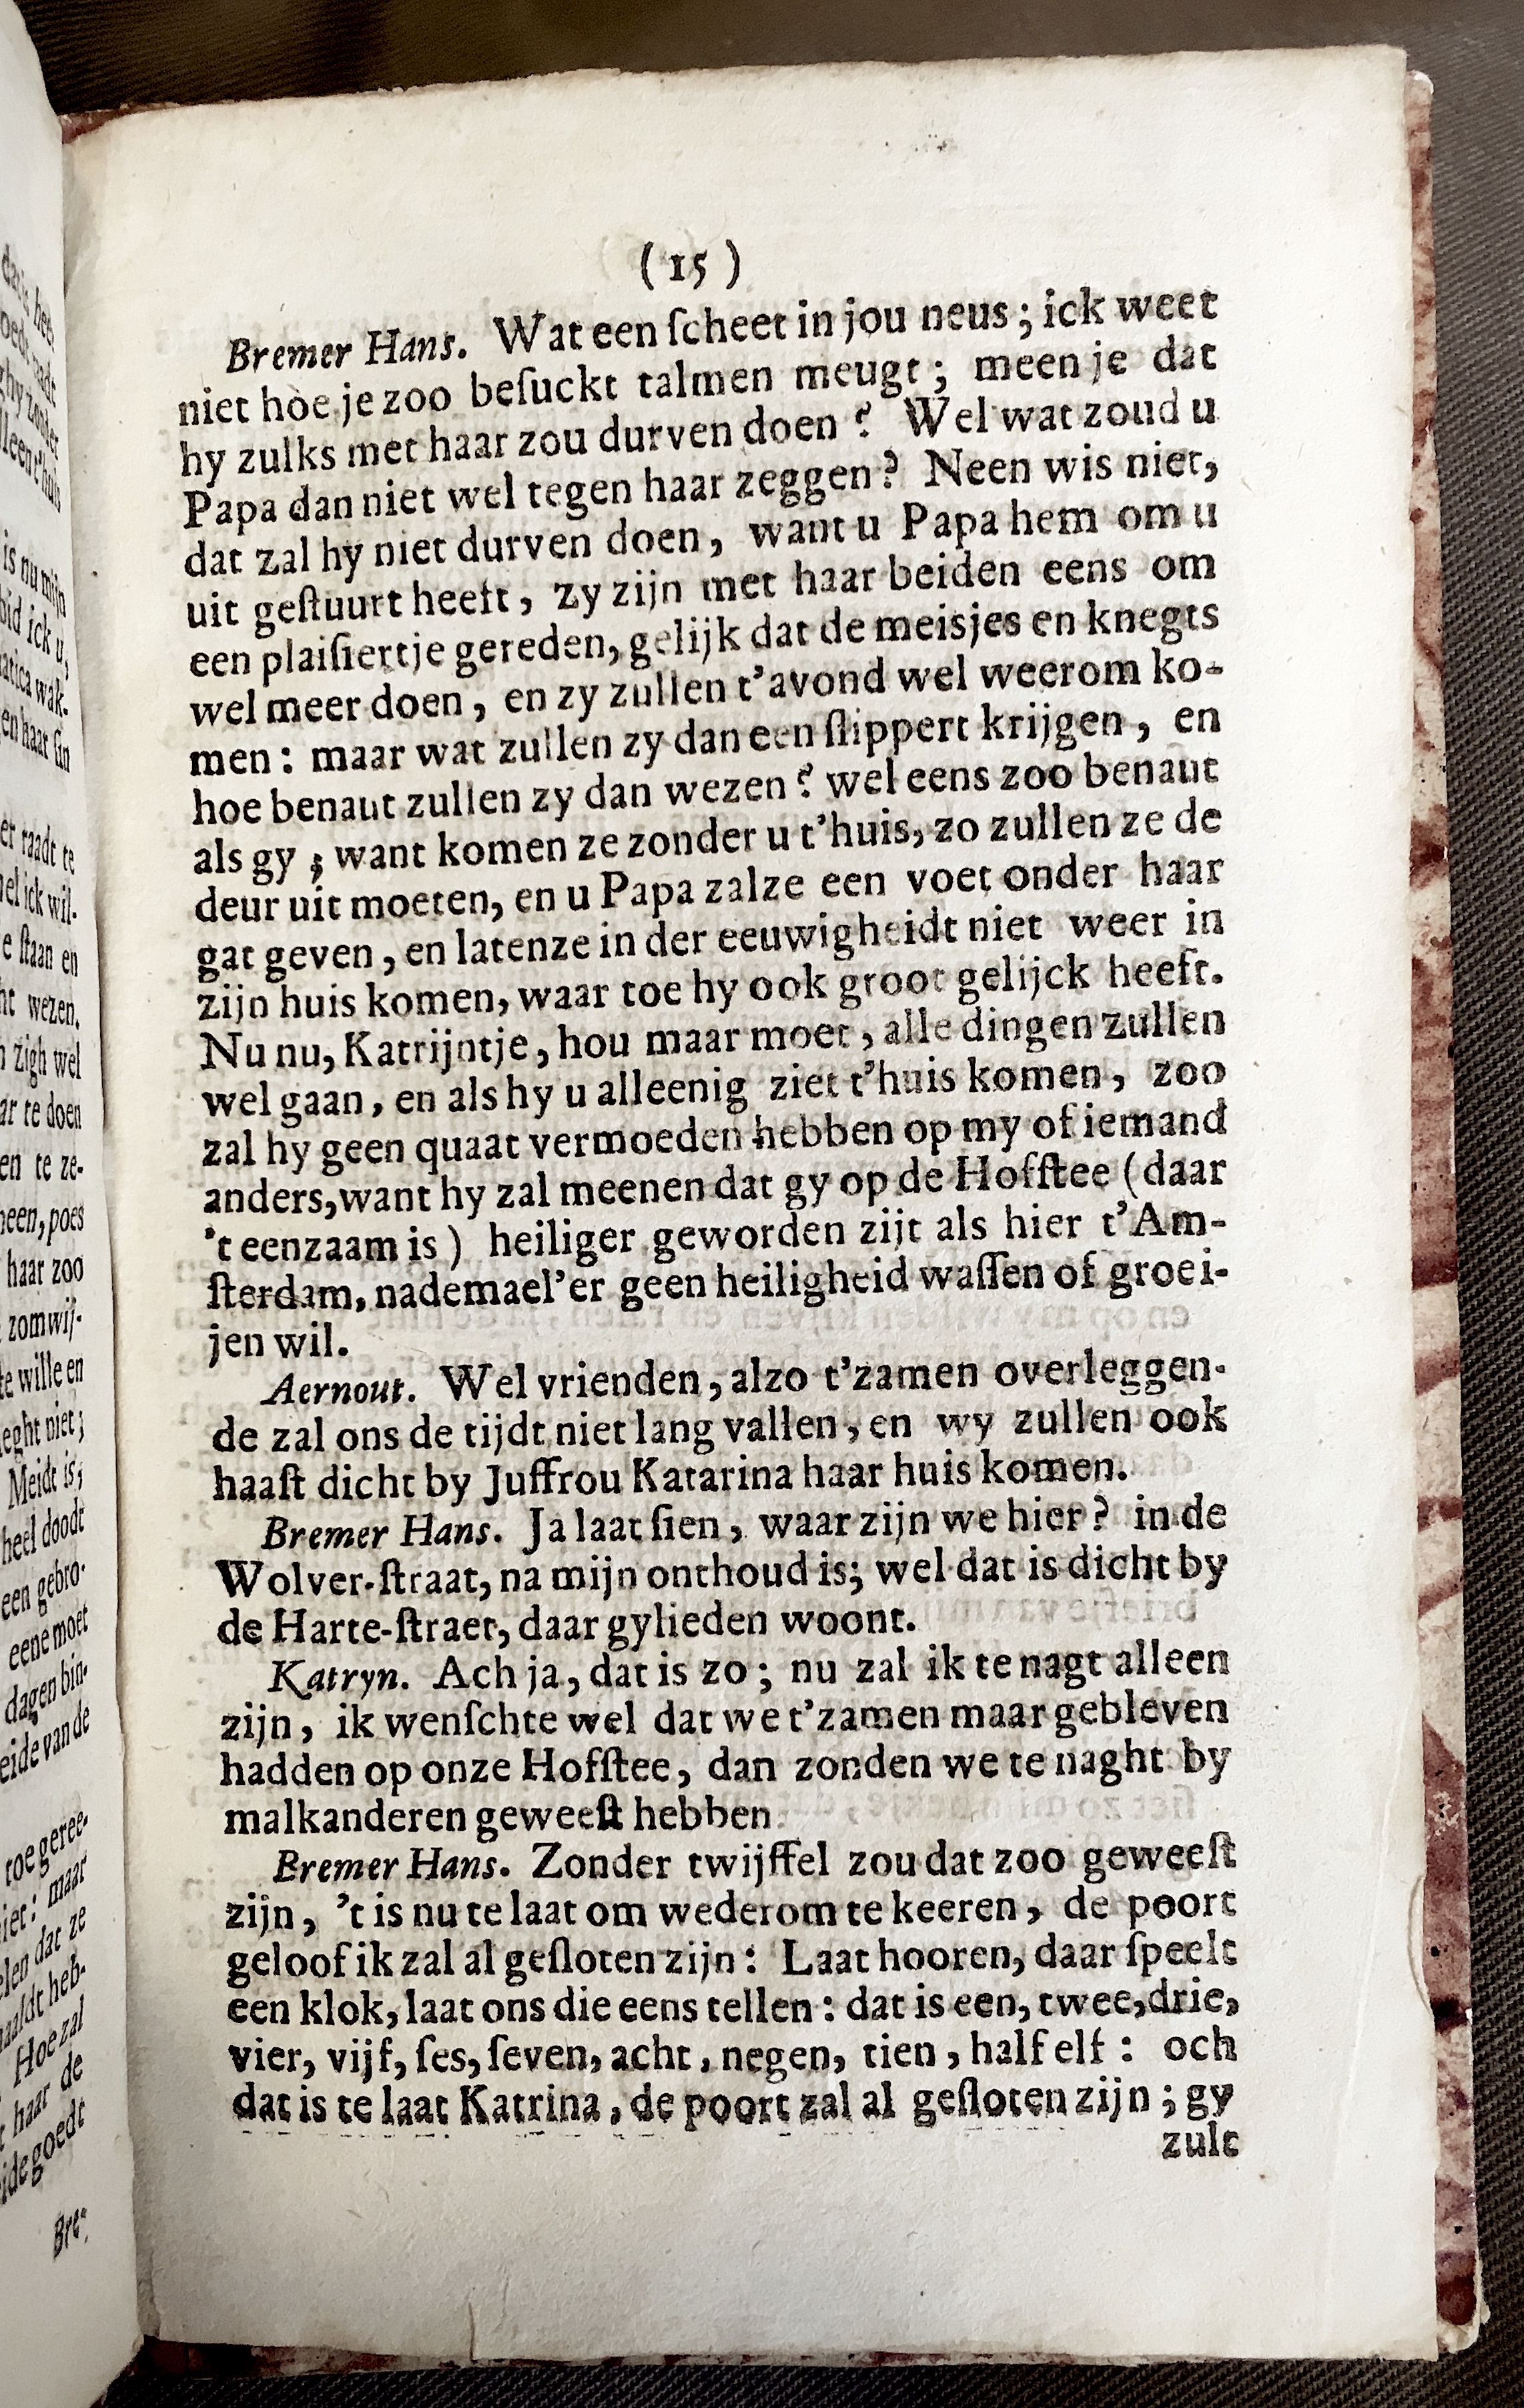 (15)
Bremer Hans. Wat een ſcheet in jou neus; ick weet
niet hoe je zoo beſuckt talmen meugt; meen je dat
hy zulks met haar zou durven doen? Wel wat zoud u
Papa dan niet wel tegen haar zeggen? Neen wis niet,
dat zal hy niet durven doen, want u Papa hem om u
uit geſtuurt heeft, zy zijn met haar beiden eens om
een plaiſiertje gereden, gelijk dat de meisjes en knegts
wel meer doen, en zy zullen t'avond wel weerom ko-
men: maar wat zullen zy dan een ſlippert krijgen, en
hoe benaut zullen zy dan wezen? wel eens zoo benaut
als gy; want komen ze zonder u t'huis, zo zullen ze de
deur uit moeten, en u Papa zalze een voet onder haar
gat geven, en latenze in der eeuwigheidt niet weer in
zijn huis komen, waar toe hy ook groot gelijck heeft.
Nu nu, Katrijntje, hou maar moet, alle dingen zullen
wel gaan, en als hy u alleenig ziet t'huis komen, zoo
zal hy geen quaat vermoeden hebben op my of iemand
anders, want hy zal meenen dat gy op de Hofſtee (daar
't eenzaam is) heiliger geworden zijt als hier t'Am-
ſterdam, nademael'er geen heiligheid waſſen of groei-
jen wil.
Aernout. Wel vrienden, alzo t'zamen overleggen-
de zal ons de tijdt niet lang vallen, en wy zullen ook
haaſt dicht by Juffrou Katarina haar huis komen.
Bremer Hans. Ja laat ſien, waar zijn we hier? in de
Wolver-ſtraat, na mijn onthoud is; wel dat is dicht by
de Harte-ſtraet, daar gylieden woont.
Katryn. Ach ja, dat is zo; nu zal ik te nagt alleen
zijn, ik wenſchte wel dat we t'zamen maar gebleven
hadden op onze Hofſtee, dan zonden we te naght by
malkanderen geweeſt hebben.
Bremer Hans. Zonder twijffel zou dat zoo geweeſt
zijn, 't is nu te laat om wederom te keeren, de poort
geloof ik zal al geſloten zijn: Laat hooren, daar ſpeelt
een klok, laat ons die eens tellen: dat is een, twee, drie,
vier, vijf, ſes, ſeven, acht, negen, tien, half elf: och
dat is te laat Katrina, de poort zal al geſloten zijn; gy
zult